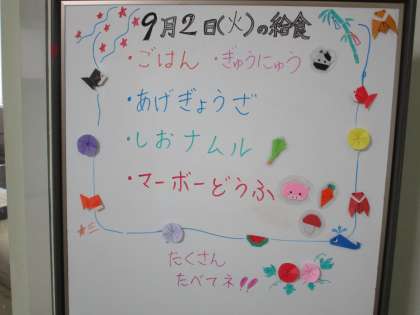 9月2日(火)の給食
・ごはん ・ぎゅうにゅう
・あげぎょうざ
・しおナムル
・マーボーどうふ
たくさん
たべてネ!!